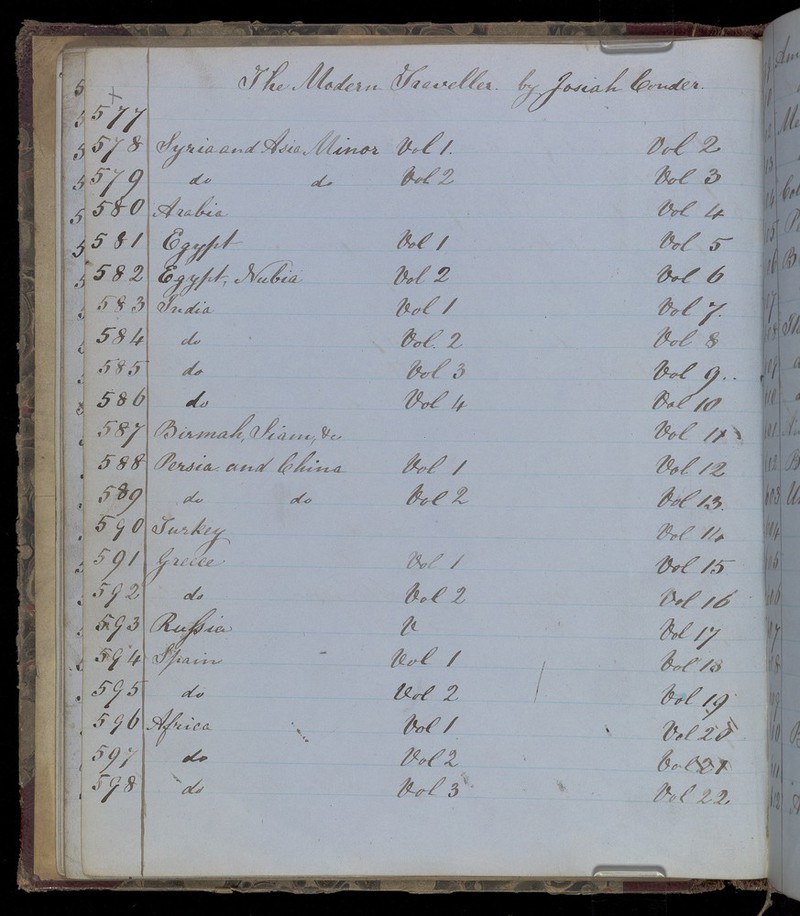 The Modern Traveller. by Josiah Conder.
577
578 Syria and Asia Minor Vol 1. Vol 2
579 do do Vol 2 Vol 3
580 Arabia Vol 4
581 Egypt Vol 1 Vol 5
582 Egypt, Nubia Vol 2 Vol 6
583 India Vol 1 Vol 7.
584 do Vol. 2 Vol 8
585 do Vol 3 Vol 9..
586 do Vol 4 Vol 10
587 Birmah, Siam, &c Vol 11
588 Persia and China Vol 1 Vol 12
589 do do Vol 2 Vol 13.
590 Turkey Vol 14
591 Greece Vol 1 Vol 15
592 do Vol 2 Vol 16
593 Russia V Vol 17
594 Spain Vol 1 Vol 18
595 do Vol 2 Vol 19
596 Africa Vol 1 Vol 20
597 do Vol 2 Vol 21
598 do Vol 3 Vol 22